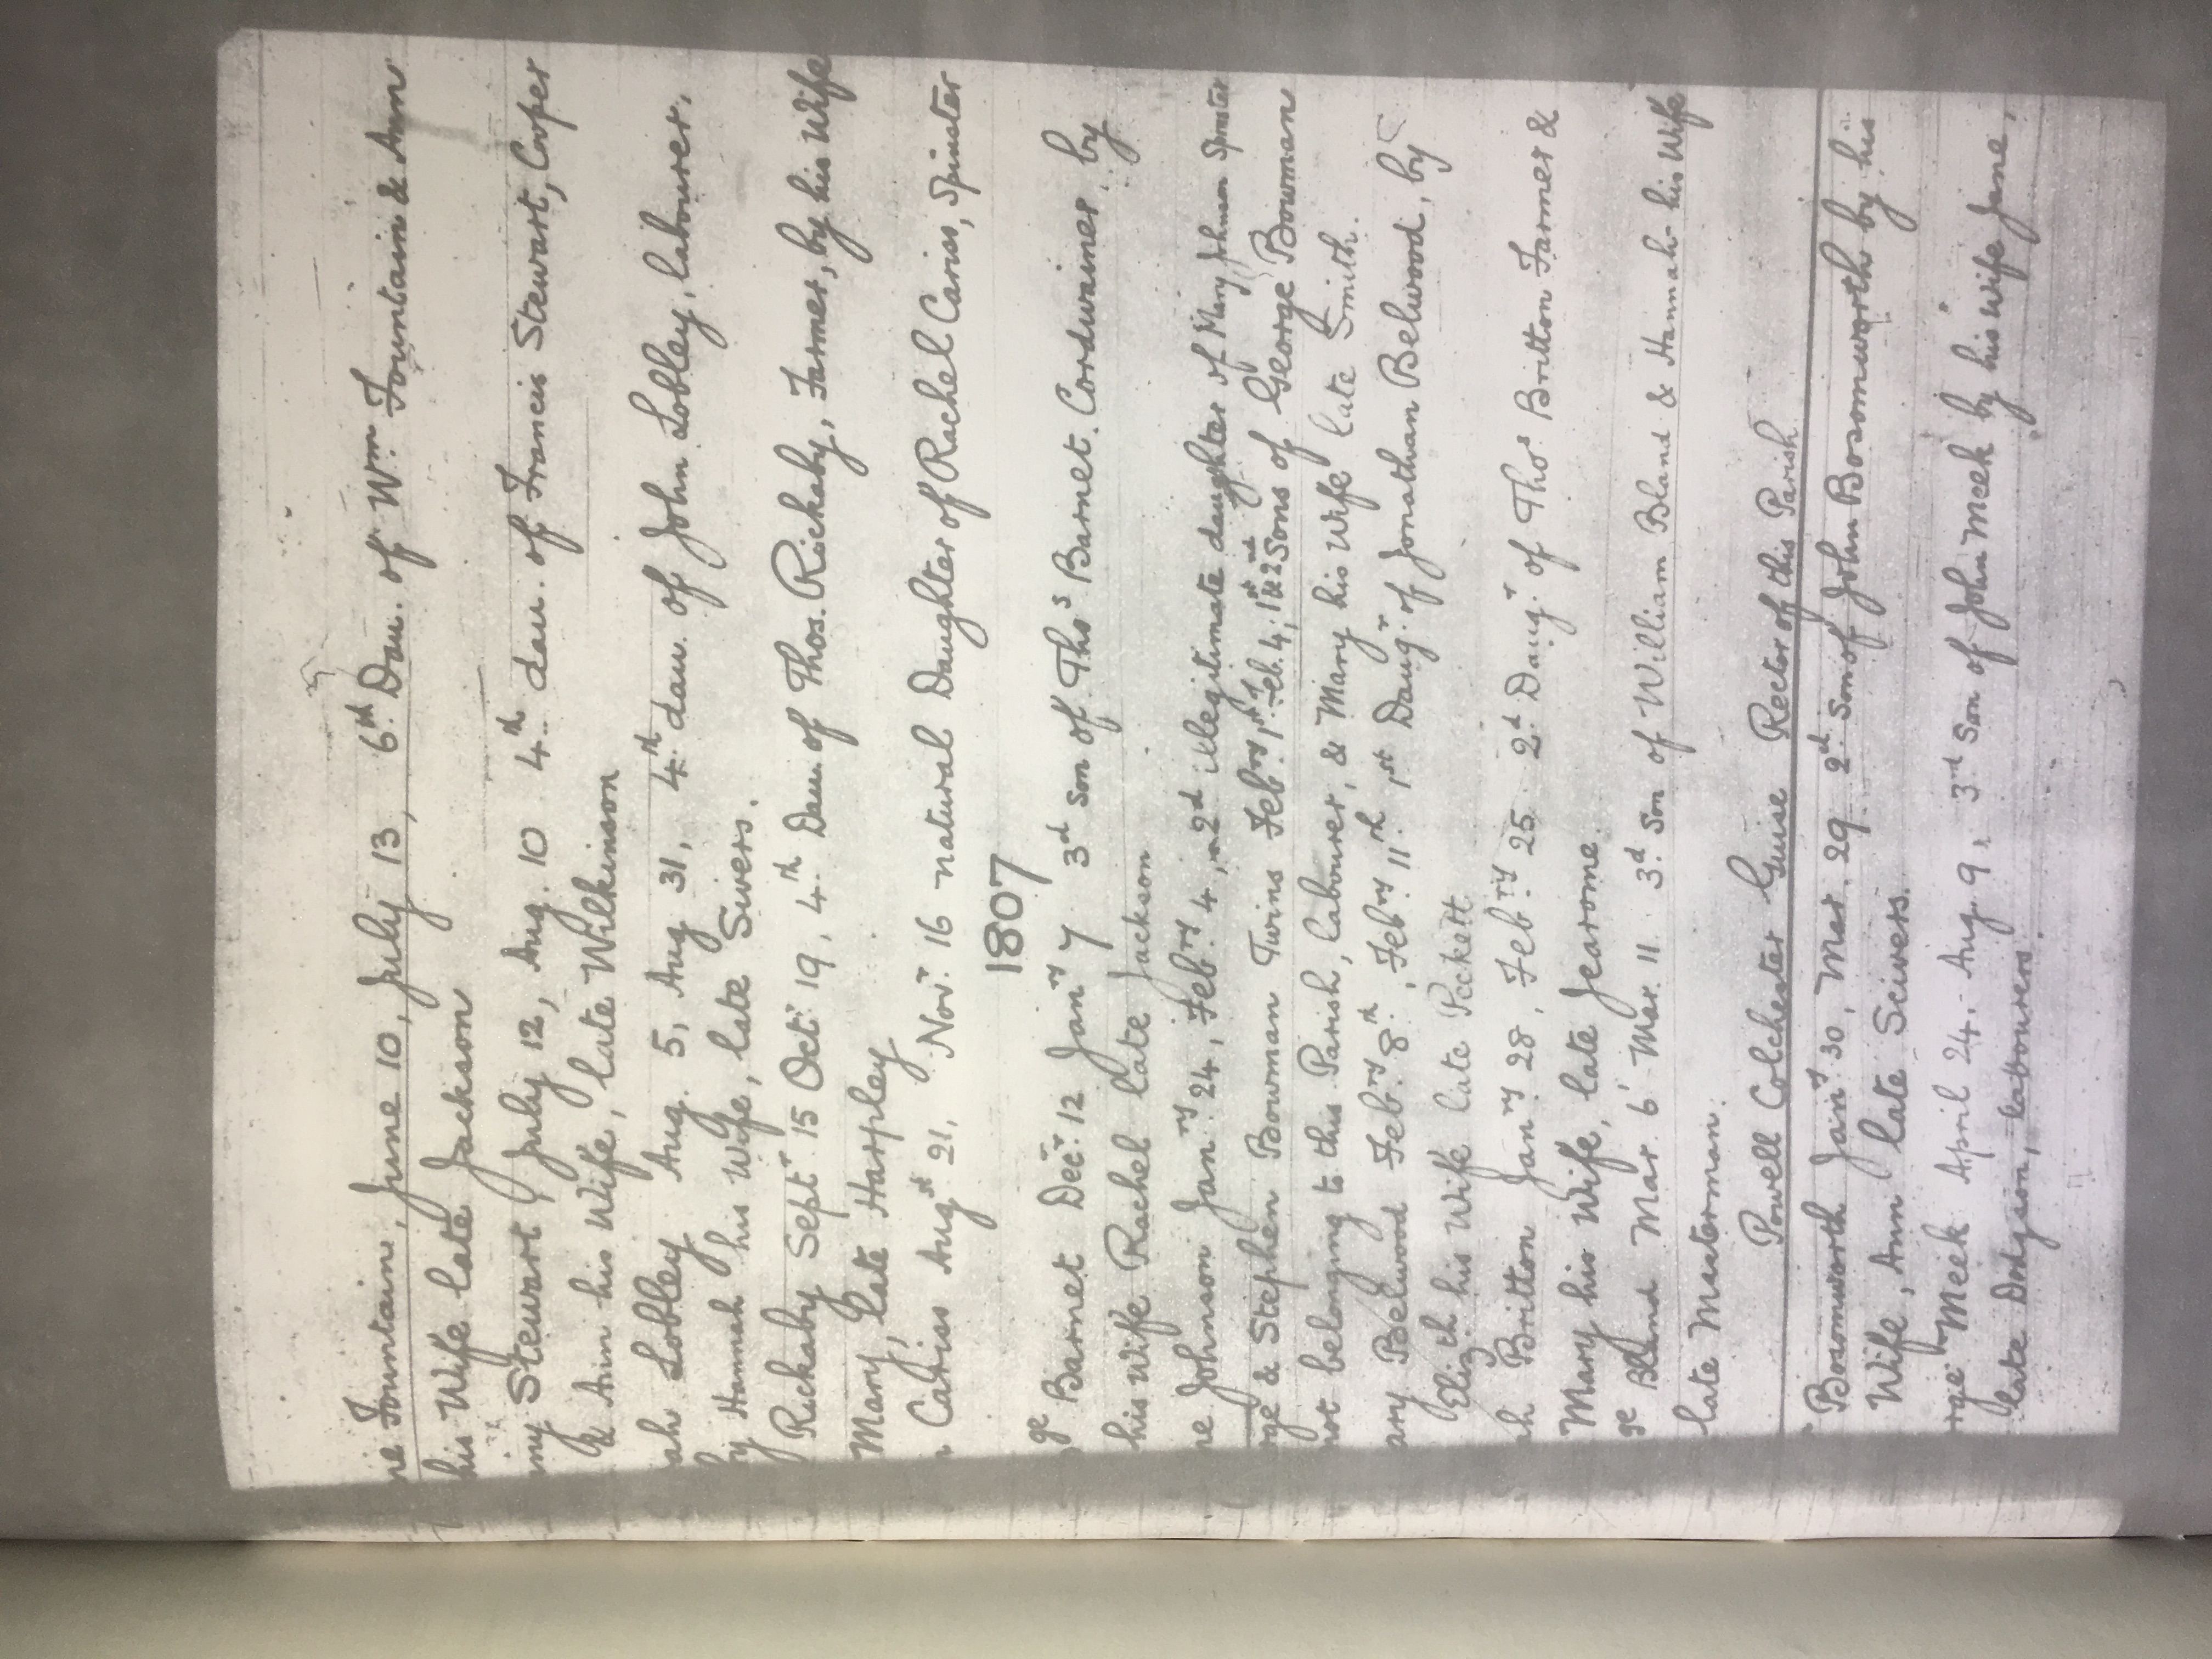 ne Fountain, June 10, July 13, 6th Dau. of Wm Fountain & Ann
his Wife late Jackson
my Stewart, July 12, Aug. 10 4th dau. of Francis Stewart, Cooper
& Ann his Wife, late Wilkinson
ah Lobley Aug. 5, Aug 31, 4th dau. of John Lobley, labourer,
by Hannah his Wife, late Sivers.
Rickaby Sept 15 Oct. 19, 4th Dau of Thos. Rickaby, Farmer, by his Wife
Mary, late Harpley
Cariss Augst 21, Novr 16 natural Daughter of Rachel Cariss, Spinster
1807
ge Barnet Decr 12 Janry 7 3d Son of Thos Barnet Cordwainer by
his Wife Rachel late Jackson
ne Johnson Janry 24, Febry 4, 2d illegitimate daughter of Mary Johnson Spinster
rge & Stephen Bowman Twins Febry 1st Feb. 4, 1st & 2nd Sons of George Bowman
not belonging to this Parish, labourer, & Mary his Wife late Smith.
ary Belwood Febry 8th, Febry 11th 1st Daugr of Jonathan Belwood, by
Elizth his Wife late Peckett
ah Britton Janry 28, Febry 25 2d Daugr of Thos Britton Farmer &
Mary his Wife, late Jearome.
ge Bland Mar. 6 Mar. 11 3d Son of William Bland & Hannah his Wife
late Masterman.
Powell Colchester Guise Rector of this Parish
Bosomworth Janry 30, Mar. 29 2d Son of John Bosomworth by his
Wife, Ann late Scivers.
rge Meek April 24. Aug. 9, 3rd Son of John Meek by his Wife Jane,
late Dodgson, labourers.